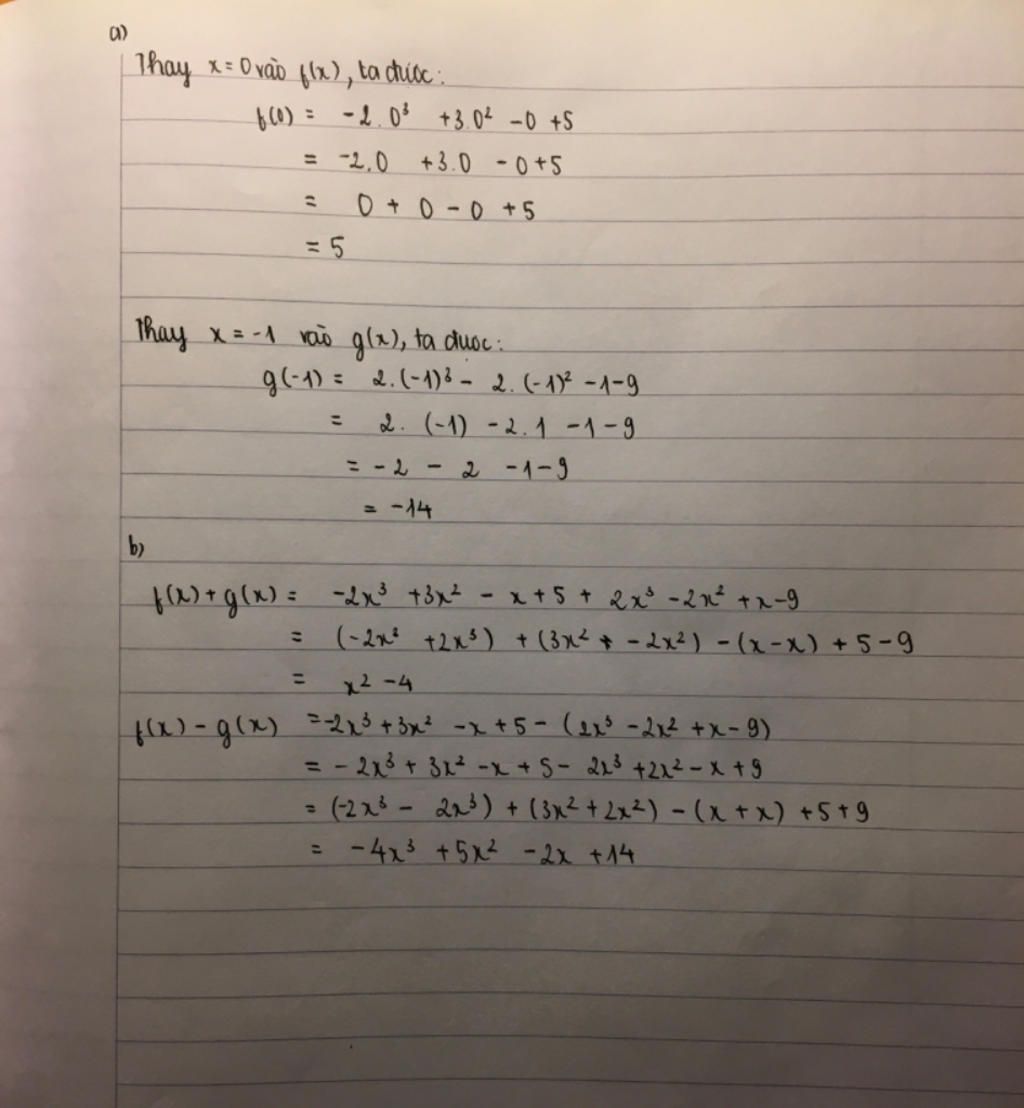 a)
Thay x = 0 vào f(x), ta được:
f(0) = -2.0³ +3.0² -0 +5
= -2.0 +3.0 -0+5
= 0 + 0 - 0 +5
= 5
Thay x = -1 vào g(x), ta được:
g(-1) = 2.(-1)³ - 2.(-1)² -1-9
= 2.(-1) -2.1 -1-9
= -2 - 2 -1-9
= -14
b)
f(x)+g(x) = -2x³ +3x² - x+5 + 2x³ -2x² +x-9
= (-2x³ +2x³) + (3x² + -2x²) -(x-x) + 5-9
= x² -4
f(x) - g(x) =-2x³ +3x² -x+5-(2x³ -2x² +x-9)
= -2x³ + 3x² -x+5- 2x³ +2x² -x+9
= (-2x³ - 2x³) + (3x²+2x²) -(x+x) +5+9
= -4x³ +5x² -2x +14